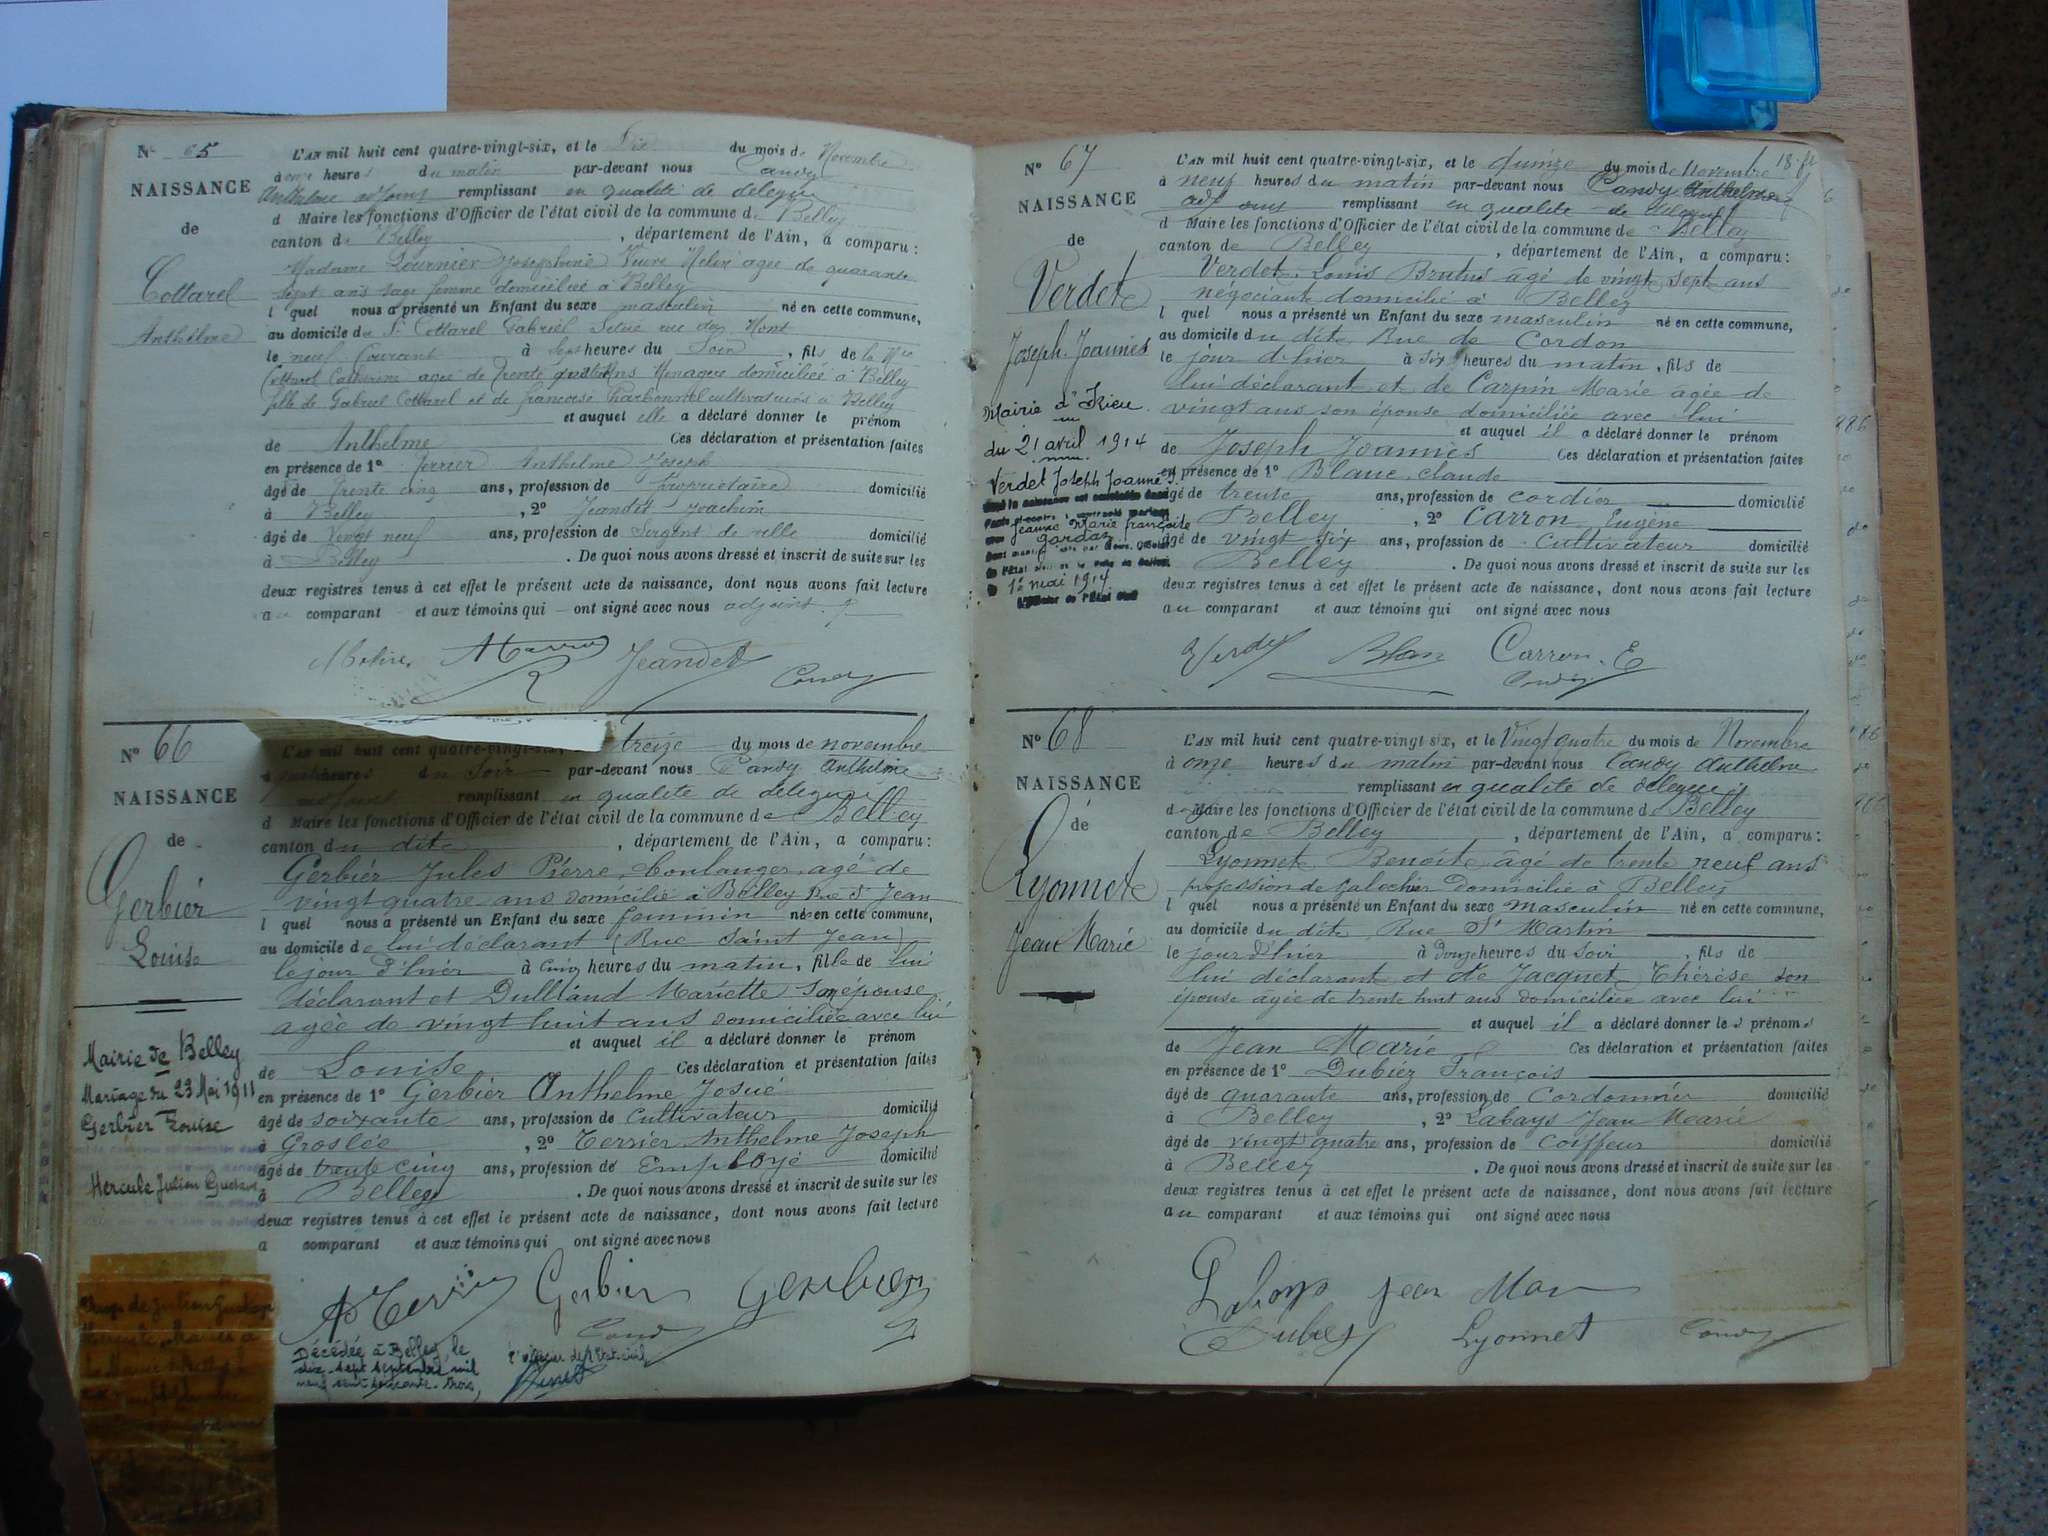 Nº 65
NAISSANCE
de
Cottarel
Anthelme
L'AN mil huit cent quatre-vingt-six, et le Dix du mois de Novembre
à onze heures du matin par-devant nous Candy
Anthelme adjoint remplissant en qualité de délégué
d Maire les fonctions d'Officier de l'état civil de la commune de Belley
canton de Belley, département de l'Ain, a comparu:
Madame Josephine Veuve agée de quarante
sept ans sage femme domiciliée à Belley
l quel nous a présenté un Enfant du sexe masculin né en cette commune,
au domicile du Sr Cottarel Gabriel rue des
le neuf Courant à sept heures du Soir, fils de la
Cottarel Catherine agée de trente ans Menagère domiciliée à Belley
fille de Gabriel Cottarel et de françoise Charbonnel cultivateurs à Belley
et auquel elle a déclaré donner le prénom
de Anthelme Ces déclaration et présentation faites
en présence de 1º Terrier Anthelme Joseph
âgé de trente cinq ans, profession de propriétaire domicilié
à Belley, 2º Jeandet Joachim
âgé de vingt neuf ans, profession de Sergent de ville domicilié
à Belley. De quoi nous avons dressé et inscrit de suite sur les
deux registres tenus à cet effet le présent acte de naissance, dont nous avons fait lecture
au comparant et aux témoins qui ont signé avec nous adjoint
Jeandet Candy
Nº 66
NAISSANCE
de
Gerbier
Louise
Mairie de Belley
Mariage du 23 Mai 1911
Gerbier Louise
Hercule Julien Gustave
L'AN mil huit cent quatre-vingt-six, treize du mois de novembre
heures du soir par-devant nous Candy Anthelme
adjoint remplissant en qualité de délégué
d Maire les fonctions d'Officier de l'état civil de la commune de Belley
canton du dit, département de l'Ain, a comparu:
Gerbier Jules Pierre, boulanger, agé de
vingt quatre ans domicilié à Belley Rue St Jean
l quel nous a présenté un Enfant du sexe feminin née en cette commune,
au domicile de lui déclarant (Rue Saint Jean)
le jour d'hier à cinq heures du matin, fille de lui
déclarant et Dulliand Mariette son épouse
agée de vingt huit ans domiciliée avec lui
et auquel il a déclaré donner le prénom
de Louise Ces déclaration et présentation faites
en présence de 1º Gerbier Anthelme Josué
âgé de soixante ans, profession de Cultivateur domicilié
à Groslée, 2º Terrier Anthelme Joseph
âgé de trente cinq ans, profession de Employé domicilié
à Belley. De quoi nous avons dressé et inscrit de suite sur les
deux registres tenus à cet effet le présent acte de naissance, dont nous avons fait lecture
a comparant et aux témoins qui ont signé avec nous
Gerbier Gerbier
Candy
Décédée à Belley, le
dix-sept septembre mil
neuf cent soixante-trois,
l'officier de l'Etat civil
Nº 67
NAISSANCE
de
Verdet
Joseph Joannès
Mairie d'
du 21 avril 1914
Verdet Joseph Joannès
Jeanne Marie françoise
1er mai 1914
L'AN mil huit cent quatre-vingt-six, et le quinze du mois de Novembre
à neuf heures du matin par-devant nous Candy Anthelme
adjoint remplissant en qualité de délégué
d Maire les fonctions d'Officier de l'état civil de la commune de Belley
canton de Belley, département de l'Ain, a comparu:
Verdet Louis Brutus agé de vingt sept ans
négociant domicilié à Belley
l quel nous a présenté un Enfant du sexe masculin né en cette commune,
au domicile du dit Rue de Cordon
le jour d'hier à six heures du matin, fils de
lui déclarant et de Carpin Marie agée de
vingt ans son épouse domiciliée avec lui
et auquel il a déclaré donner le prénom
de Joseph Joannès Ces déclaration et présentation faites
en présence de 1º Blanc claude
âgé de trente ans, profession de cordier domicilié
Belley, 2º Carron Eugène
âgé de vingt six ans, profession de Cultivateur domicilié
Belley. De quoi nous avons dressé et inscrit de suite sur les
deux registres tenus à cet effet le présent acte de naissance, dont nous avons fait lecture
au comparant et aux témoins qui ont signé avec nous
Verdet Blanc Carron. E
Candy
Nº 68
NAISSANCE
de
Lyonnet
Jean Marie
L'AN mil huit cent quatre-vingt six, et le Vingt quatre du mois de Novembre
à onze heures du matin par-devant nous Candy Anthelme
remplissant en qualité de délégué
d Maire les fonctions d'Officier de l'état civil de la commune de Belley
canton de Belley, département de l'Ain, a comparu:
Lyonnet Benoit agé de trente neuf ans
profession de galochier domicilié à Belley
l quel nous a présenté un Enfant du sexe masculin né en cette commune,
au domicile du dit Rue St Martin
le jour d'hier à douze heures du soir, fils de
lui déclarant et de Jacquet Thérèse son
épouse agée de trente huit ans domiciliée avec lui
et auquel il a déclaré donner les prénoms
de Jean Marie Ces déclaration et présentation faites
en présence de 1º Dubiez François
âgé de quarante ans, profession de Cordonnier domicilié
à Belley, 2º Labays Jean Marie
âgé de vingt quatre ans, profession de coiffeur domicilié
à Belley. De quoi nous avons dressé et inscrit de suite sur les
deux registres tenus à cet effet le présent acte de naissance, dont nous avons fait lecture
au comparant et aux témoins qui ont signé avec nous
Jean Mar
Lyonnet Candy